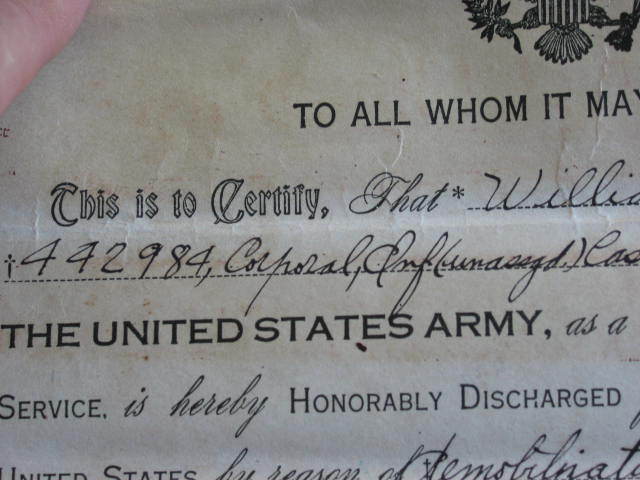 TO ALL WHOM IT MAY
This is to Certify, That* Willia
†442984, Corporal, Inf (unassgd.) Cas
THE UNITED STATES ARMY, as a
SERVICE, is hereby HONORABLY DISCHARGED
UNITED STATES by reason of † Demobilizat